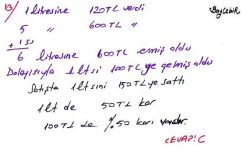 13) 1 litresine 120TL verdi
5 " 600TL "
+1 su
6 litresine 600TL ermiş oldu
Dolayısıyla 1 lt si 100TL ye gelmiş oldu
Satışta 1 lt sini 150TL ye sattı
1 lt de 50TL kar
100TL de %50 karı vardır.
CEVAP: C